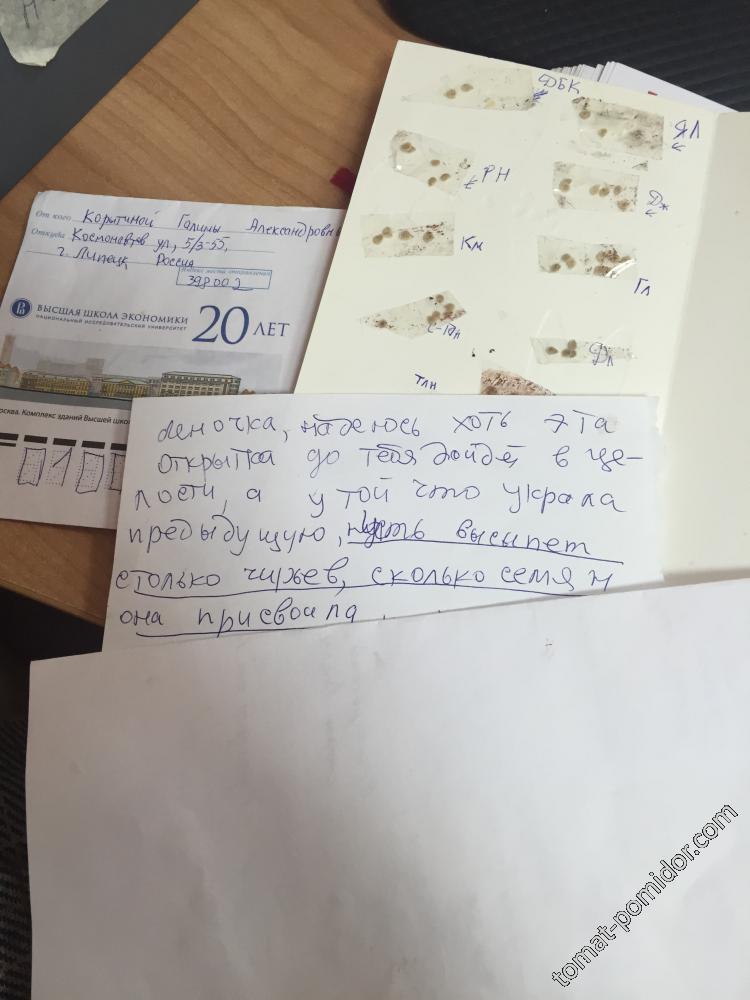 ФБК
ЯЛ
РН
Дж
Км
Гл
Фл
Тлн
От кого Коритиной Галины Александровны
Откуда Космонавтов ул, 5/3-55,
г. Липецк Россия
Индекс места отправления
398002
ВЫСШАЯ ШКОЛА ЭКОНОМИКИ
НАЦИОНАЛЬНЫЙ ИССЛЕДОВАТЕЛЬСКИЙ УНИВЕРСИТЕТ
20 ЛЕТ
Комплекс зданий Высшей
Леночка, надеюсь хоть эта
открытка до тебя дойдёт в це-
лости, а у той что украла
предыдущую, пусть высыпет
столько чирьев, сколько семян
она присвоила.
tomat-pomidor.com